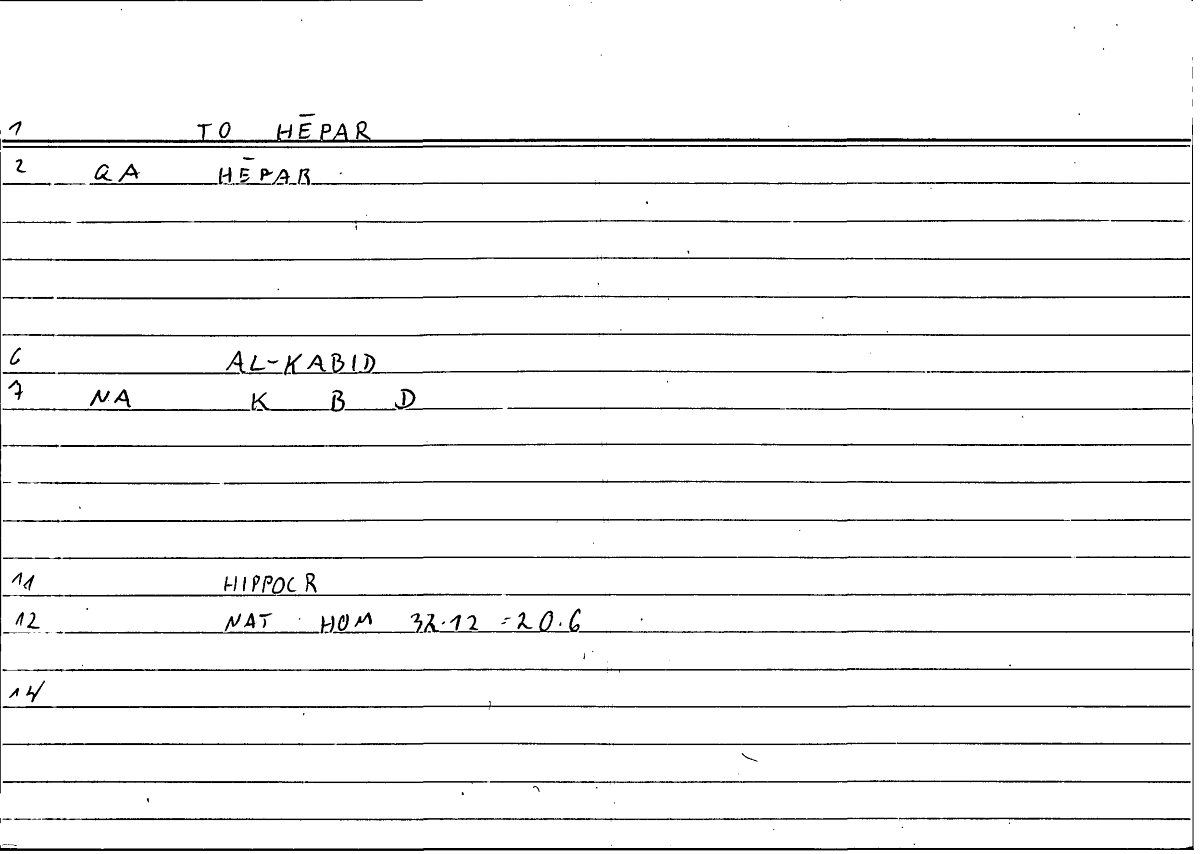 1 TO HĒPAR
2 QA HĒPAR
6 AL-KABID
7 NA K B D
11 HIPPOCR
12 NAT HOM 32.12 =20.6
14